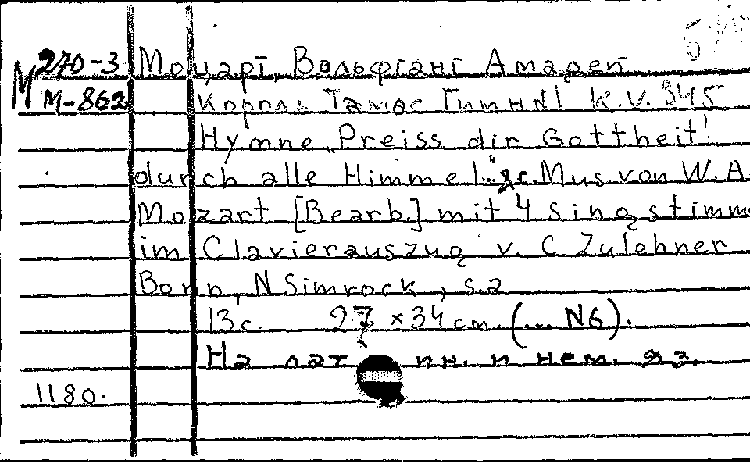 М 270-3 Моцарт, Вольфганг Амадей
М-862 Король Тамос Гимны К.V. 345
Hymne „Preiss dir Gottheit!
durch alle Himmel... Mus von W.A.
Mozart [Bearb.] mit 4 Singstimm
im Clavierauszug v. C Zulehner
Bonn, N Simrock, s.a
13с. 27 × 34 см. (... N6).
На лат ин. и нем. яз.
1180.